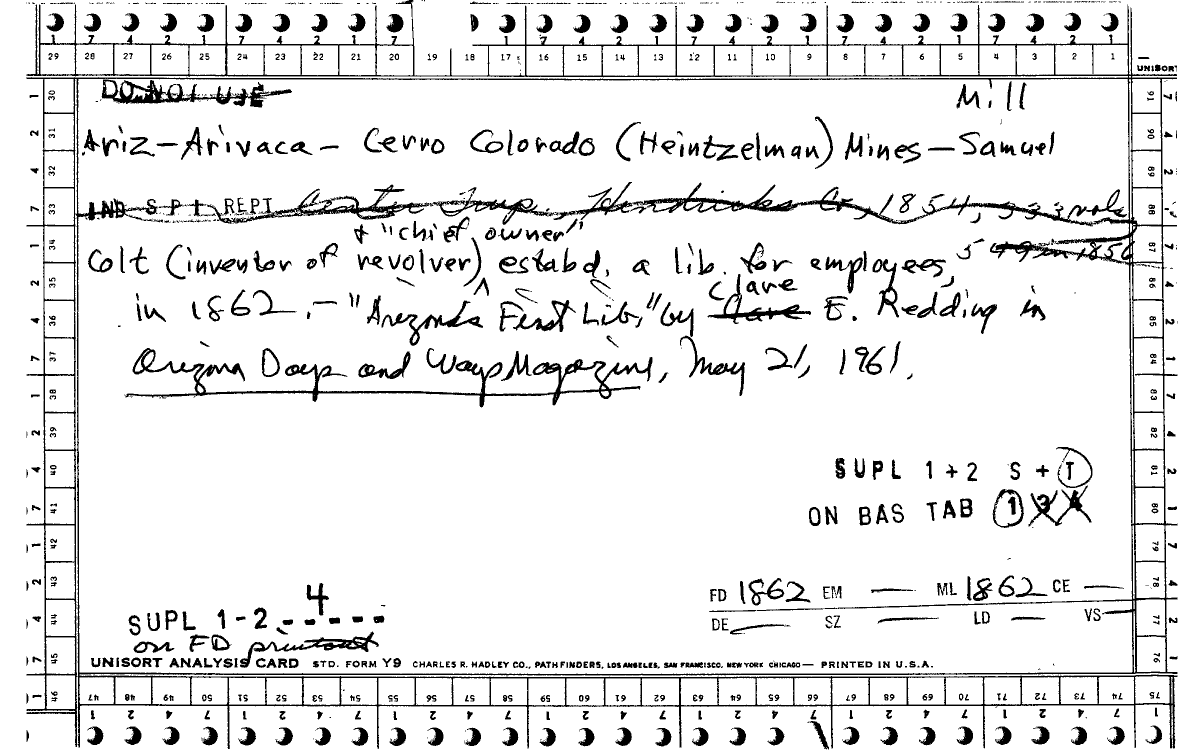 1 1 1 1 1 1 1
7 4 2 1 7 4 2 1 7 1 7 4 2 1 7 4 2 1 7 4 2 1 7 4 2 1
29 28 27 26 25 24 23 22 21 20 19 18 17 16 15 14 13 12 11 10 9 8 7 6 5 4 3 2 1
UNISORT
DO NOT USE Mill
Ariz-Arivaca- Cerro Colorado (Heintzelman) Mines-Samuel
IND SPI REPT Center Twp., Hendricks Co, 1854, 333 vols
+ "chief owner"
Colt (inventor of revolver) ^ estabd. a lib. for employees, 549 in 1856
Clare
in 1862. - "Arizona's First Lib," by Clare E. Redding in
Arizona Days and Ways Magazine, May 21, 1961.
SUPL 1+2 S+T
ON BAS TAB 1 3 4
FD 1862 EM — ML 1862 CE —
DE — SZ — LD — VS —
4
SUPL 1-2 - - - - -
on FD printout
UNISORT ANALYSIS CARD STD. FORM Y9 CHARLES R. HADLEY CO., PATHFINDERS, LOS ANGELES, SAN FRANCISCO, NEW YORK CHICAGO — PRINTED IN U.S.A.
30 31 32 33 34 35 36 37 38 39 40 41 42 43 44 45 46
91 90 89 88 87 86 85 84 83 82 81 80 79 78 77 76 75
47 48 49 50 51 52 53 54 55 56 57 58 59 60 61 62 63 64 65 66 67 68 69 70 71 72 73 74 75